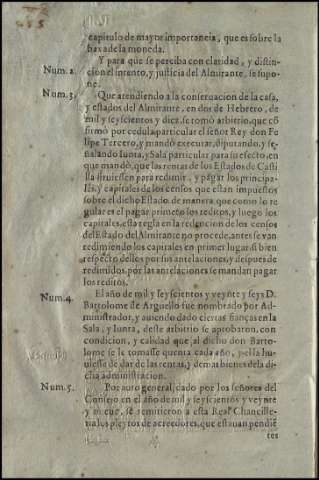 capitulo de mayor importancia, que es sobre la
baxa de la moneda.
Num. 2. Y para que se perciba con claridad, y distin-
cion el intento, y justicia del Almirante, se supo-
ne.
Num. 3. Que atendiendo a la conseruacion de la casa,
y estados del Almirante, en dos de Hebrero, de
mil y seyscientos y diez, se tomò arbitrio, que cõ
firmò por cedula particular el señor Rey don Fe
lipe Tercero, y mandò executar, diputando, y se-
ñalando Iunta, y Sala particular para su efecto, en
que mandò, que las rentas de los Estados de Casti
lla siruiessen para redimir, y pagar los principa-
les, y capitales de los censos que estan impuestos
sobre el dicho Estado, de manera, que como lo re
gular es el pagar primero los reditos, y luego los
capitales, esta regla en la redencion de los censos
del Estado del Almirante no procede, antes se van
redimiendo los capitales en primer lugar, si bien
respecto dellos por sus antelaciones, y despues de
redimidos, por las antelaciones se mandan pagar
los reditos.
Num. 4. El año de mil y seyscientos y veynte y seys D.
Bartolome de Arguello fue nombrado por Ad-
ministrador, y auiendo dado ciertas fianças en la
Sala, y Iunta, deste arbitrio se aprobaron, con
condicion, y calidad que al dicho don Barto-
lome se le tomasse quenta cada año, y ella hu-
uiesse de dar de las rentas, y demas bienes de la di-
cha administracion.
Num. 5. Por auto general, dado por los señores del
Consejo en el año de mil y seyscientos y veynte
y nueue, se remitieron a esta Real Chancille-
ria los pleytos de acreedores, que estauan pendiẽ
tes